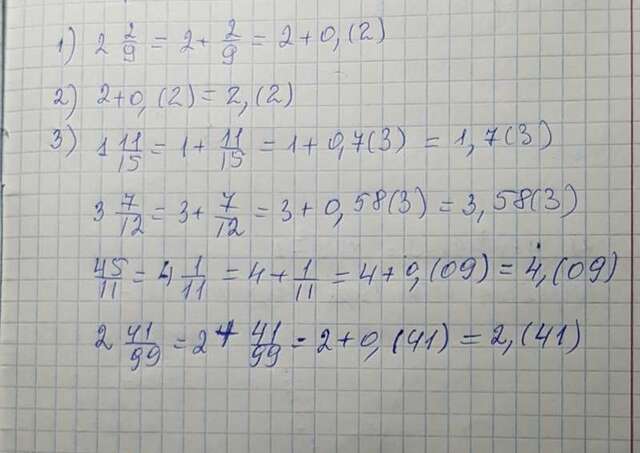 1) 2 2/9 = 2 + 2/9 = 2 + 0,(2)
2) 2+0,(2) = 2,(2)
3) 1 11/15 = 1 + 11/15 = 1 + 0,7(3) = 1,7(3)
3 7/12 = 3 + 7/12 = 3 + 0,58(3) = 3,58(3)
45/11 = 4 1/11 = 4 + 1/11 = 4 + 0,(09) = 4,(09)
2 41/99 = 2 + 41/99 = 2 + 0,(41) = 2,(41)